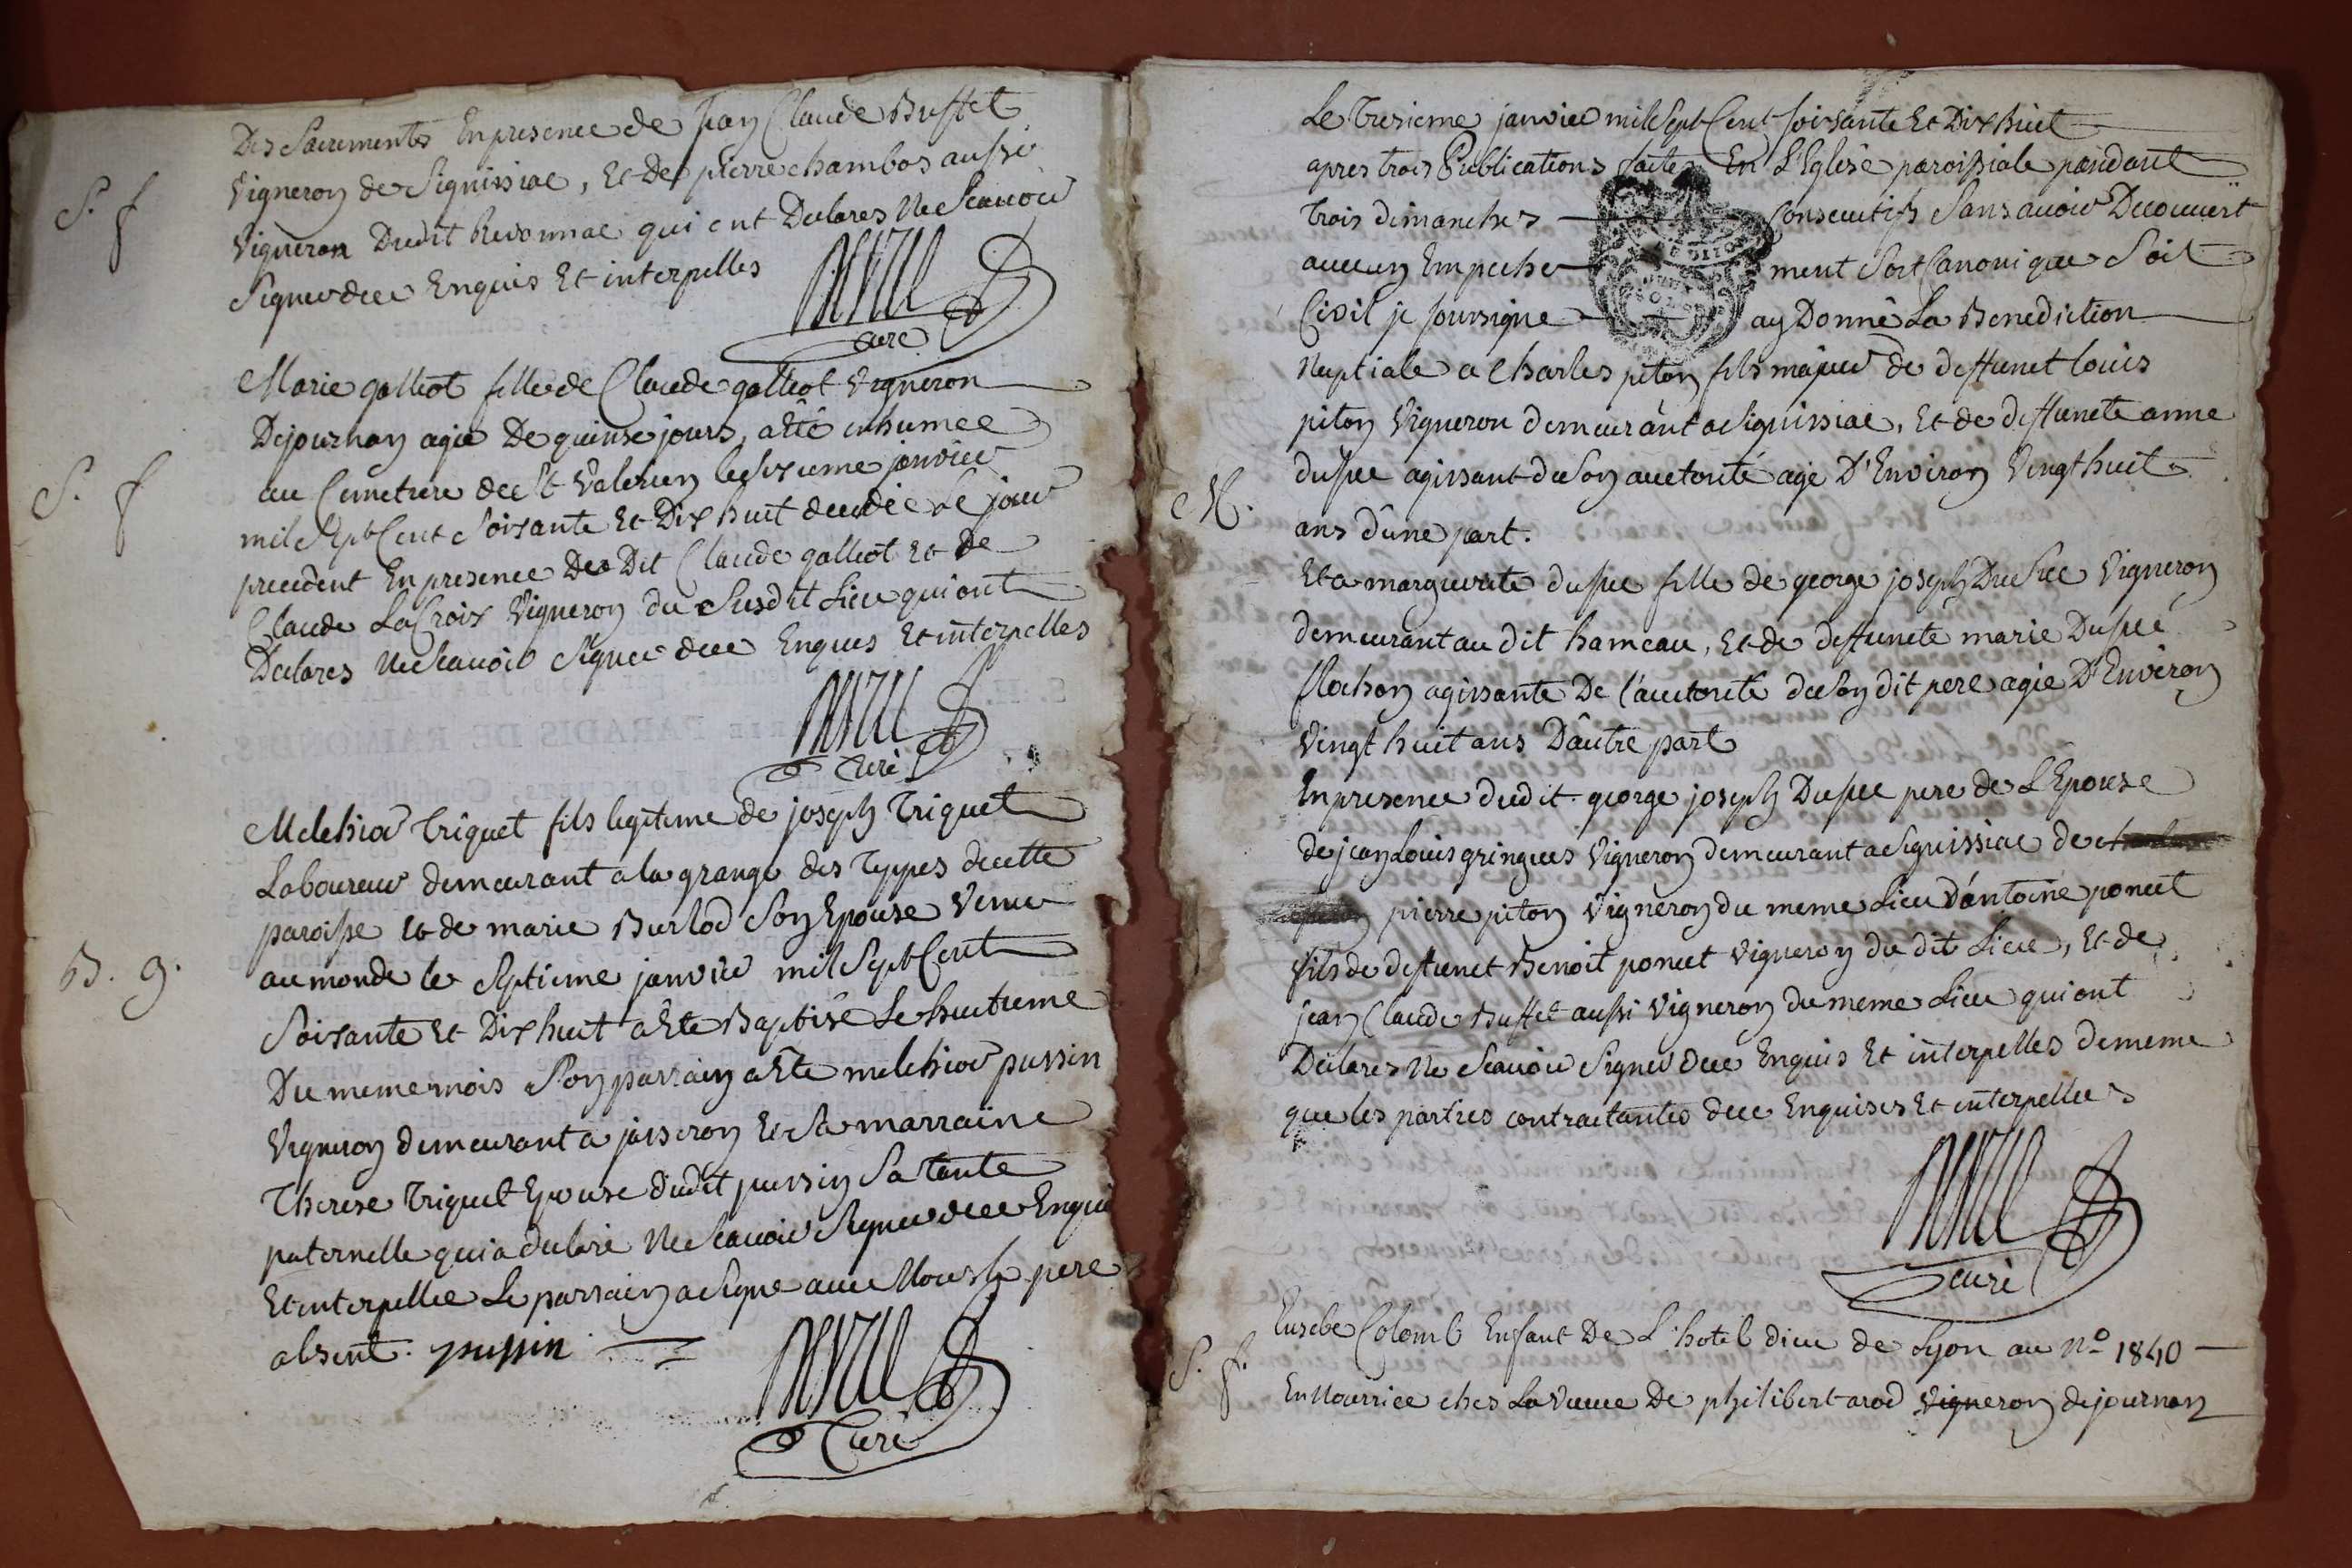 Des Sacrements En presence de Jean Claude Buffet
S. f
Vigneron de Signissiac, Et De pierre chambos aussi
Vigneron Dudit Revonnac qui ont Declares Ne Scavoir
Signer dece Enquis Et interpelles
Curé
Marie galliot fille de Claude galliot Vigneron
Dejournan agée De quinse jours, a Eté inhumee
S. f
au Cimetiere de St Valerien le Sixieme janvier
mil Sept Cent Soixante Et Dix huit decedée le jour
precedent En presence De Dit Claude galliot Et De
Claude LaCroix Vigneron du Susdit Lieu qui ont
Declares Ne Scavoir Signer dece Enquis Et interpelles
Curé
Melchior Triquet fils legitime de joseph Triquet
Laboureur demeurant a la grange des Teppes decette
paroisse Et de marie Burlod Son Epouse Venu
B. g.
au monde le Septieme janvier mil Sept Cent
Soixante Et Dix huit a Eté Baptisé Le huitieme
Du meme mois Son parrain a Eté melchior pussin
Vigneron demeurant a jasseron Et Sa marraine
Therese Triquet Epouse dudit pussin Sa tante
paternelle qui a declaré Ne Scavoir Signer dece Enquise
Et interpellée Le parrain a Signé avec Nous le pere
absent. pussin
Curé
Le Tresieme janvier mil Sept Cent soixante Et Dix huit
apres trois Publications faites En L'Eglise paroissiale pendant
Trois dimanches Consecutifs Sans avoir Decouvert
aucun Empeche ment Soit Canonique Soit
Civil je soussigne ay Donné La Benediction
Nuptiale a Charles piton fils majeur de deffunct louis
piton Vigneron demeurant a Signissiac, Et de deffuncte anne
M.
dupré agissant de Son authorité agé D'Environ Vingt huit
ans d'une part.
Et a marguerite dupré fille de george joseph Dupré Vigneron
demeurant au dit hameau, Et de deffuncte marie Dupré
flochon agissante De l'authorité de Son dit pere agée D'Environ
Vingt huit ans D'autre part
En presence dudit george joseph Dupré pere de L'Epouse
de jean Louis gringues Vigneron demeurant a Signissiac de
pierre piton Vigneron du meme Lieu D'antoine poncet
fils de deffunct Benoit poncet Vigneron du dit Lieu, Et de
jean Claude Buffet aussi Vigneron du meme Lieu qui ont
Declares Ne Scavoir Signer dece Enquis Et interpelles de meme
que les parties contractantes dece Enquises Et interpellees
Curé
Eusebe Colomb Enfant De L'hotel dieu de Lyon au N° 1840
S. f.
En Nourrice ches La Veuve De philibert arod Vigneron de journan